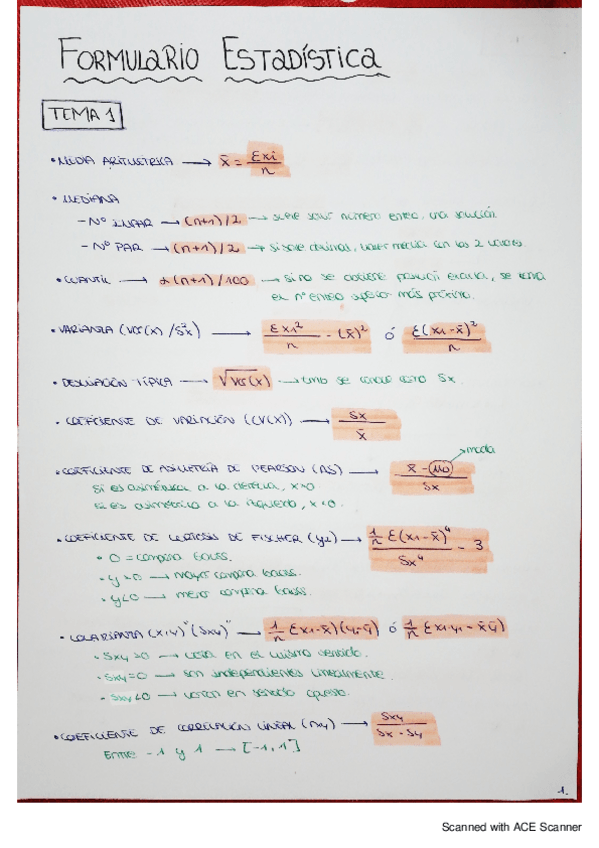 FORMULARIO ESTADÍSTICA
TEMA 1
• MEDIA ARITMÉTRICA → x̄ = Σxi / n
• MEDIANA
– Nº IMPAR → (n+1)/2 → suele salir número entero, una solución
– Nº PAR → (n+1)/2 → si sale decimales, hacer media con los 2 valores
• CUANTIL → α(n+1)/100 → si no se obtiene posición exacta, se toma
el nº entero superior más próximo.
• VARIANZA (Var(x)/S²x) → Σx1² / n - (x̄)² ó Σ(x1-x̄)² / n
• DESVIACIÓN TÍPICA → √Var(x) → se conoce como Sx.
• COEFICIENTE DE VARIACIÓN (CV(X)) → Sx / x̄
• COEFICIENTE DE ASIMETRÍA DE PEARSON (AS) → x̄ - Mo / Sx → moda
Si es asimétrica a la derecha, x>0
Si es asimétrica a la izquierda, x<0.
• COEFICIENTE DE CURTOSIS DE FISCHER (γ2) → 1/n Σ(x1-x̄)⁴ / Sx⁴ - 3
• 0 = campana Gauss.
• γ>0 → mayor campana Gauss.
• γ<0 → menor campana Gauss.
• COVARIANZA (x,y) "(Sxy)" → 1/n Σx1-x̄)(yi-ȳ) ó 1/n Σx1·y1 - x̄ȳ)
• Sxy>0 → varía en el mismo sentido.
• Sxy=0 → son independientes linealmente.
• Sxy<0 → varían en sentido opuesto.
• COEFICIENTE DE CORRELACIÓN LINEAL (rxy) → Sxy / Sx · Sy
Entre -1 y 1 → [-1,1]
1.
Scanned with ACE Scanner